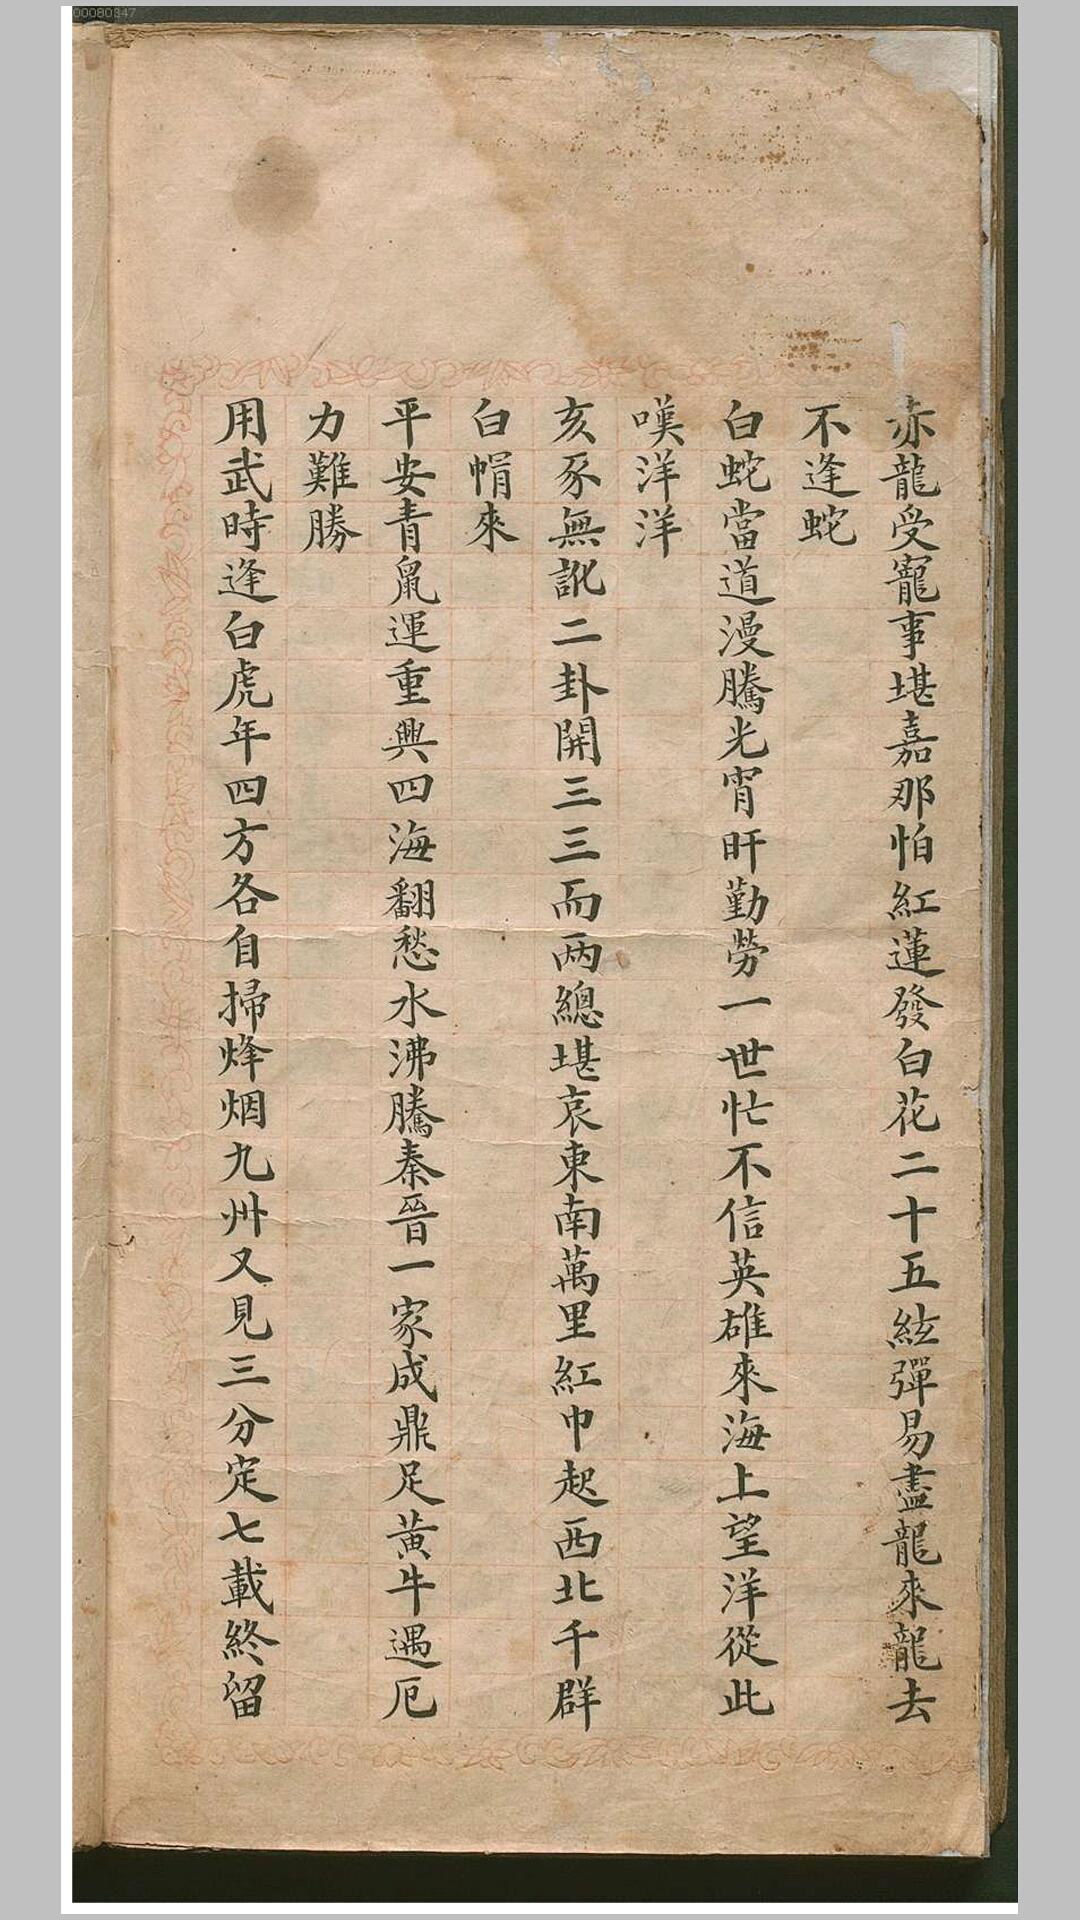 00080347
赤龍受寵事堪嘉那怕紅蓮發白花二十五絃彈易盡龍來龍去
不逢蛇
白蛇當道漫騰光宵旰勤勞一世忙不信英雄來海上望洋從此
嘆洋洋
亥豕無訛二卦開三三而兩總堪哀東南萬里紅巾起西北千群
白帽來
平安青鼠運重興四海翻愁水沸騰秦晉一家成鼎足黃牛遇厄
力難勝
用武時逢白虎年四方各自掃烽烟九州又見三分定七載終留